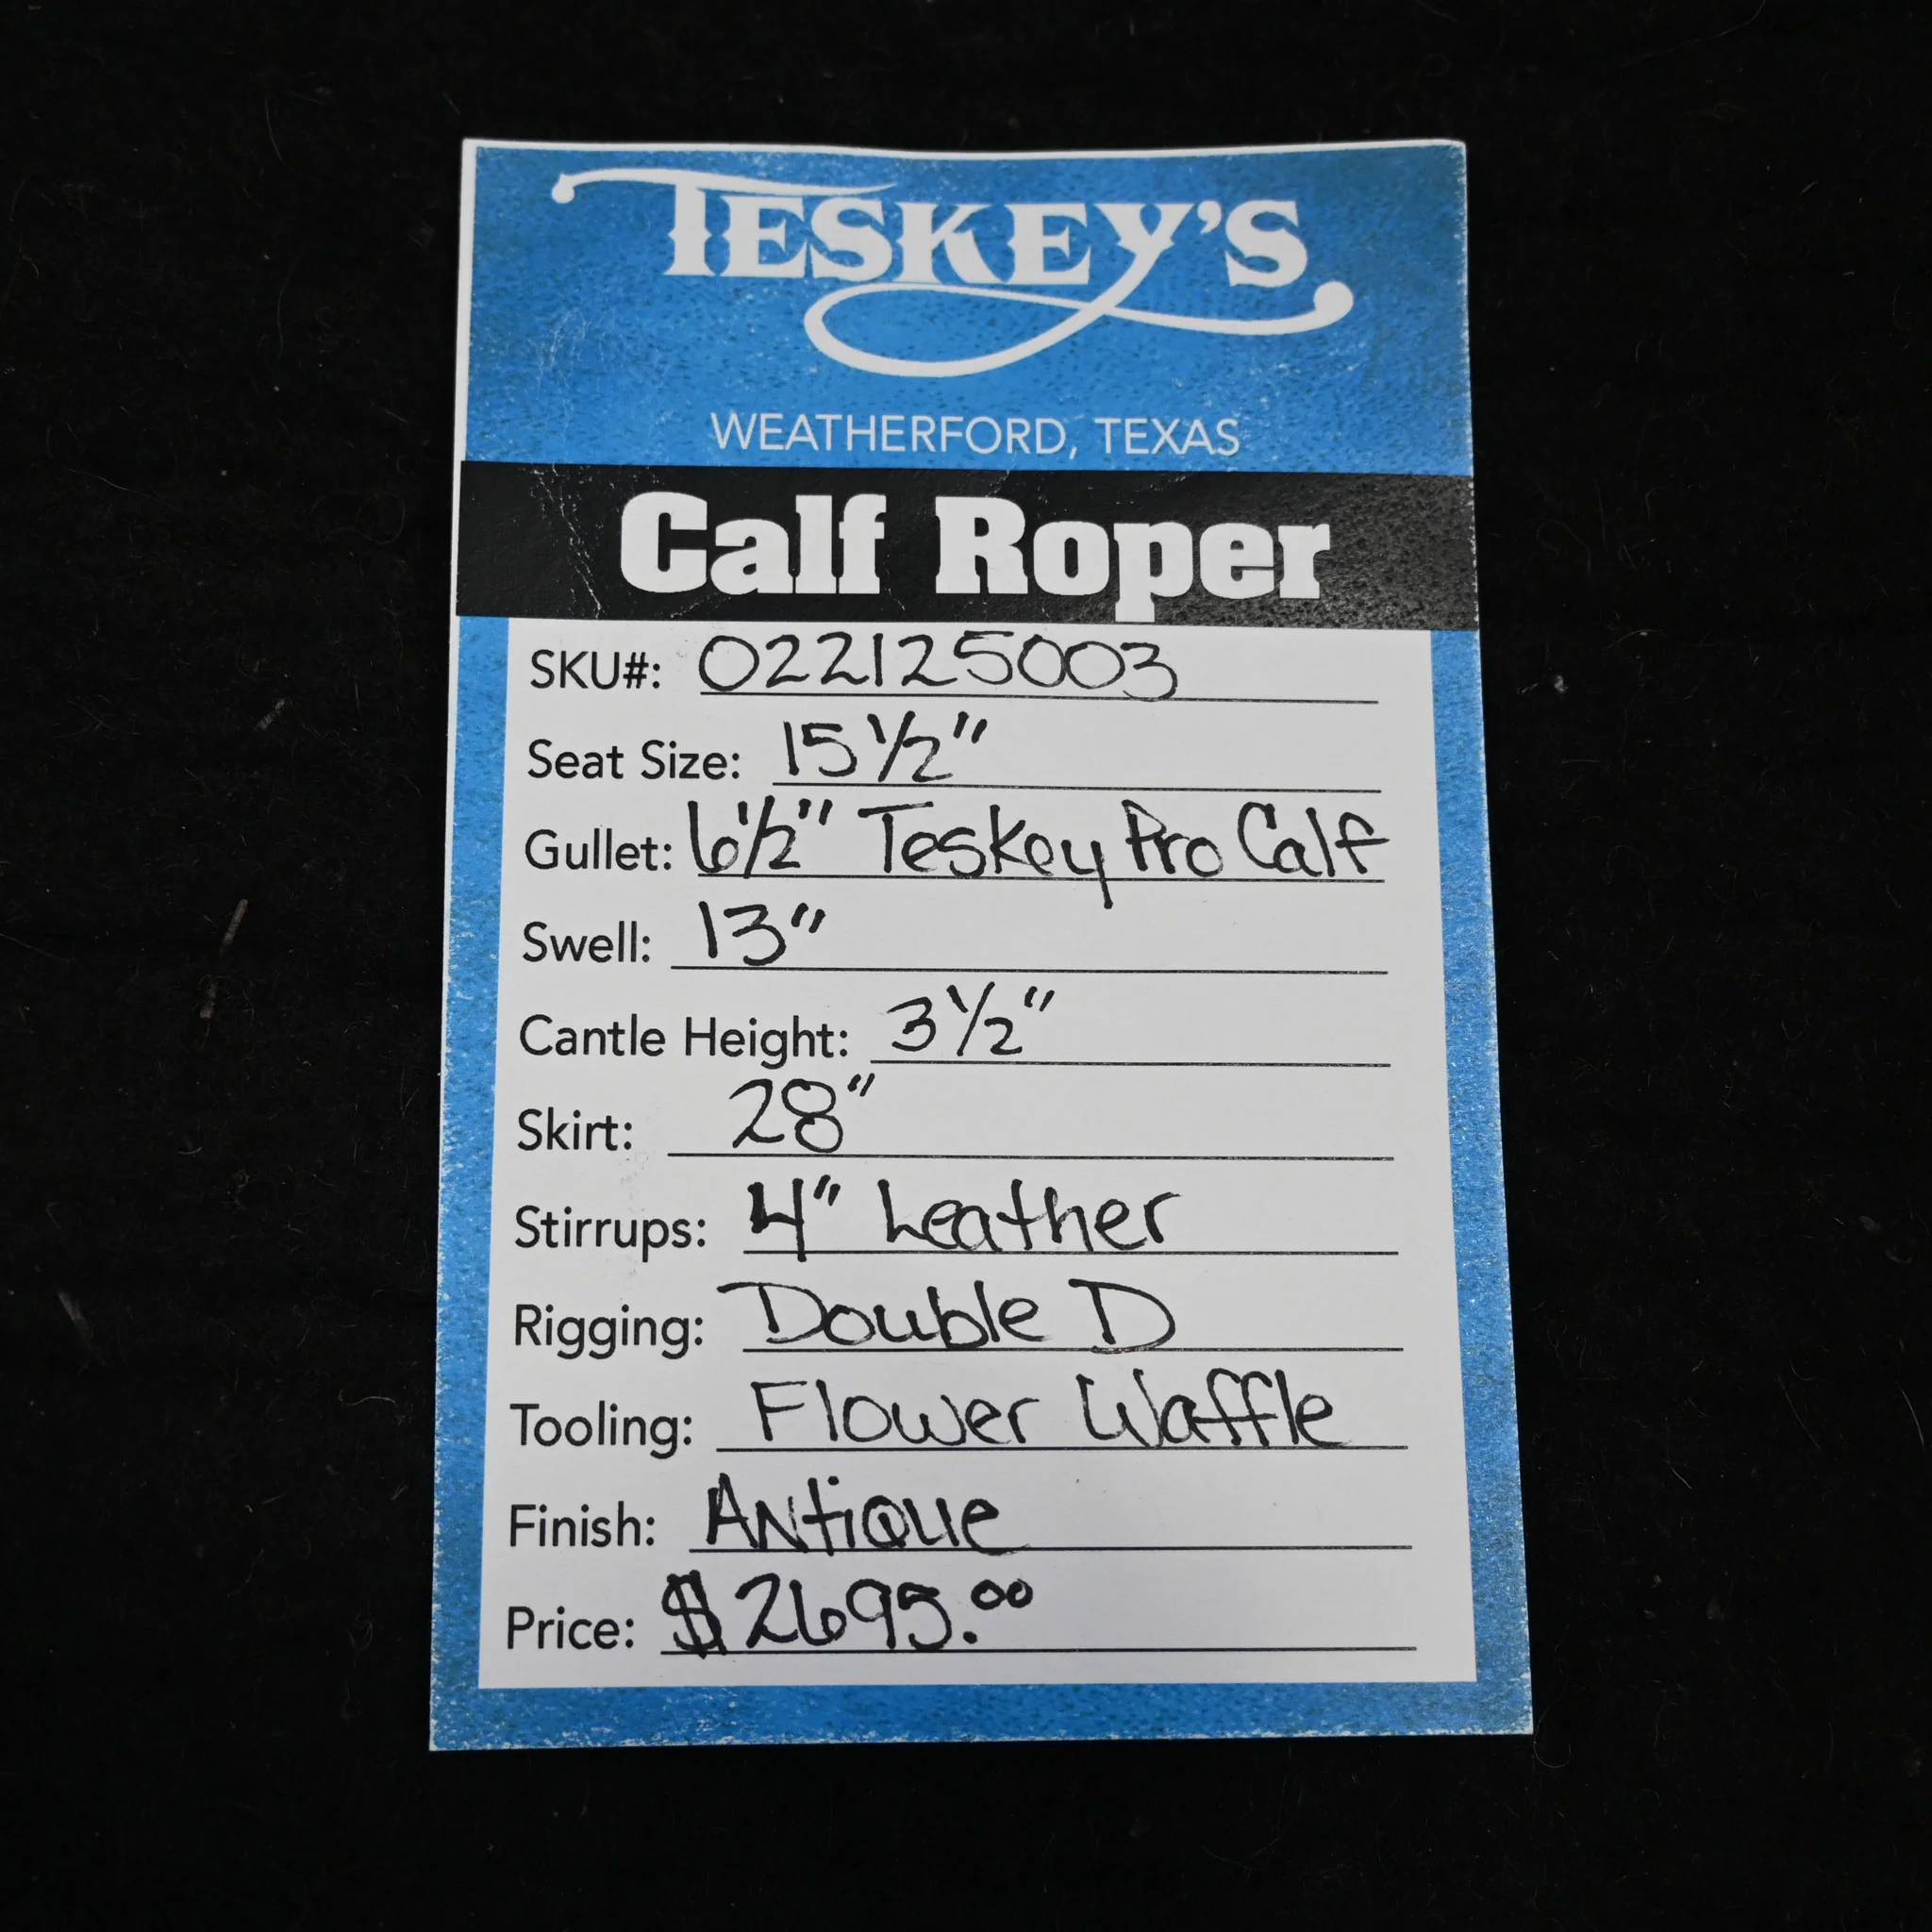 TESKEY'S
WEATHERFORD, TEXAS
Calf Roper
SKU#: 022125003
Seat Size: 15 1/2"
Gullet: 6 1/2" Teskey Pro Calf
Swell: 13"
Cantle Height: 3 1/2"
Skirt: 28"
Stirrups: 4" Leather
Rigging: Double D
Tooling: Flower Waffle
Finish: Antique
Price: $2695.00